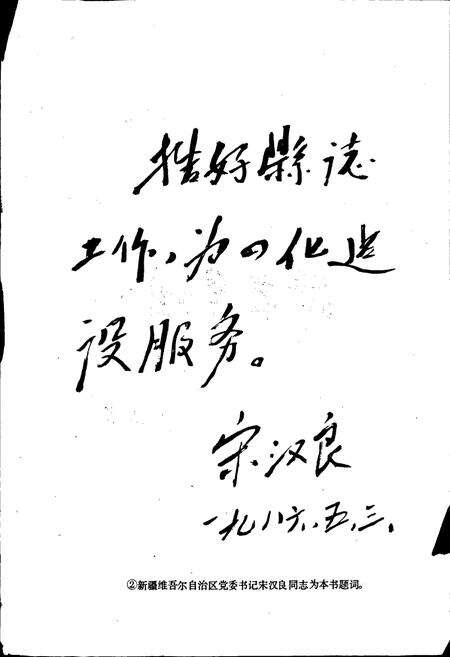 搞好縣誌
工作,为四化建
设服务。
宋汉良
一九八六、五、三、
②新疆维吾尔自治区党委书记宋汉良同志为本书题词。